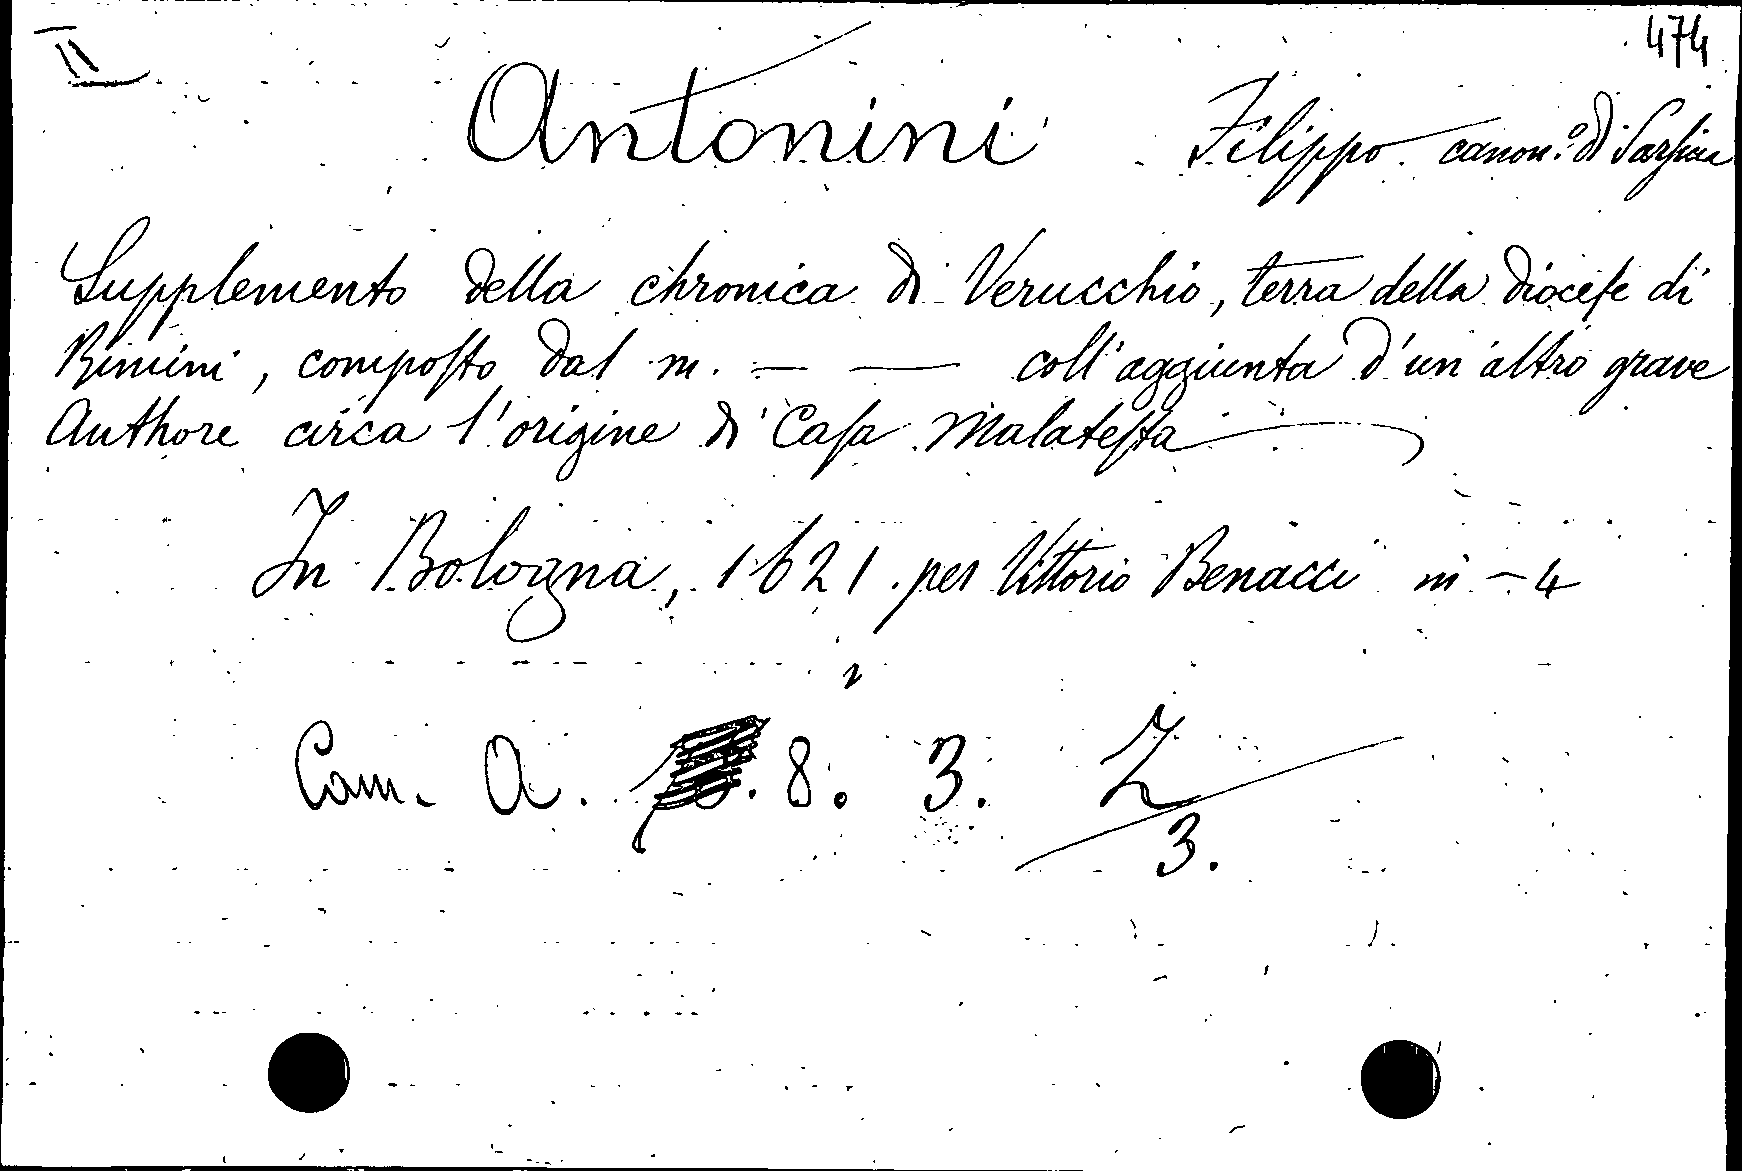 II
474
Antonini Filippo canon.º di Sarsina
Supplemento della chronica di Verucchio, terra della diocese di
Rimini, composto dal m. — — coll'aggiunta d'un altro grave
Authore circa l'origine di Casa Malatesta
In Bologna, 1621 per Vittorio Benacci in - 4
Cam. A. 8. 3. Z
3.